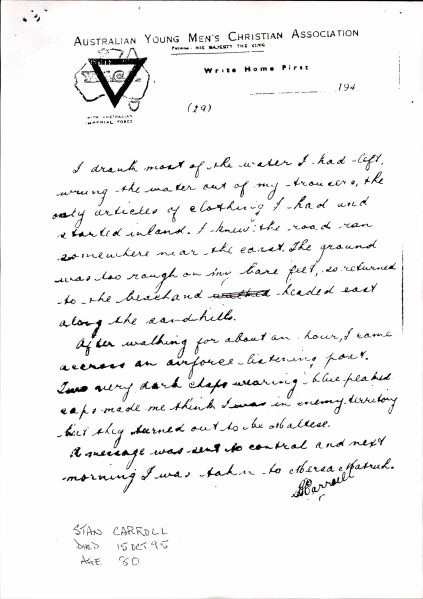 AUSTRALIAN YOUNG MEN'S CHRISTIAN ASSOCIATION
PATRON: HIS MAJESTY THE KING
Write Home First
194
WITH AUSTRALIAN
IMPERIAL FORCE
(29)
I drank most of the water I had left,
wrung the water out of my trousers, the
only articles of clothing I had and
started inland. I knew the road ran
somewhere near the coast. The ground
was too rough on my bare feet, so returned
to the beach and walked headed east
along the sandhills.
After walking for about an hour, I came
across an airforce listening post.
Two very dark chaps wearing blue peaked
caps made me think I was in enemy territory
but they turned out to be Maltese.
A message was sent to control and next
morning I was taken to Mersa Matruh.
S Carroll
STAN CARROLL
DIED 15 OCT 95
AGE 80